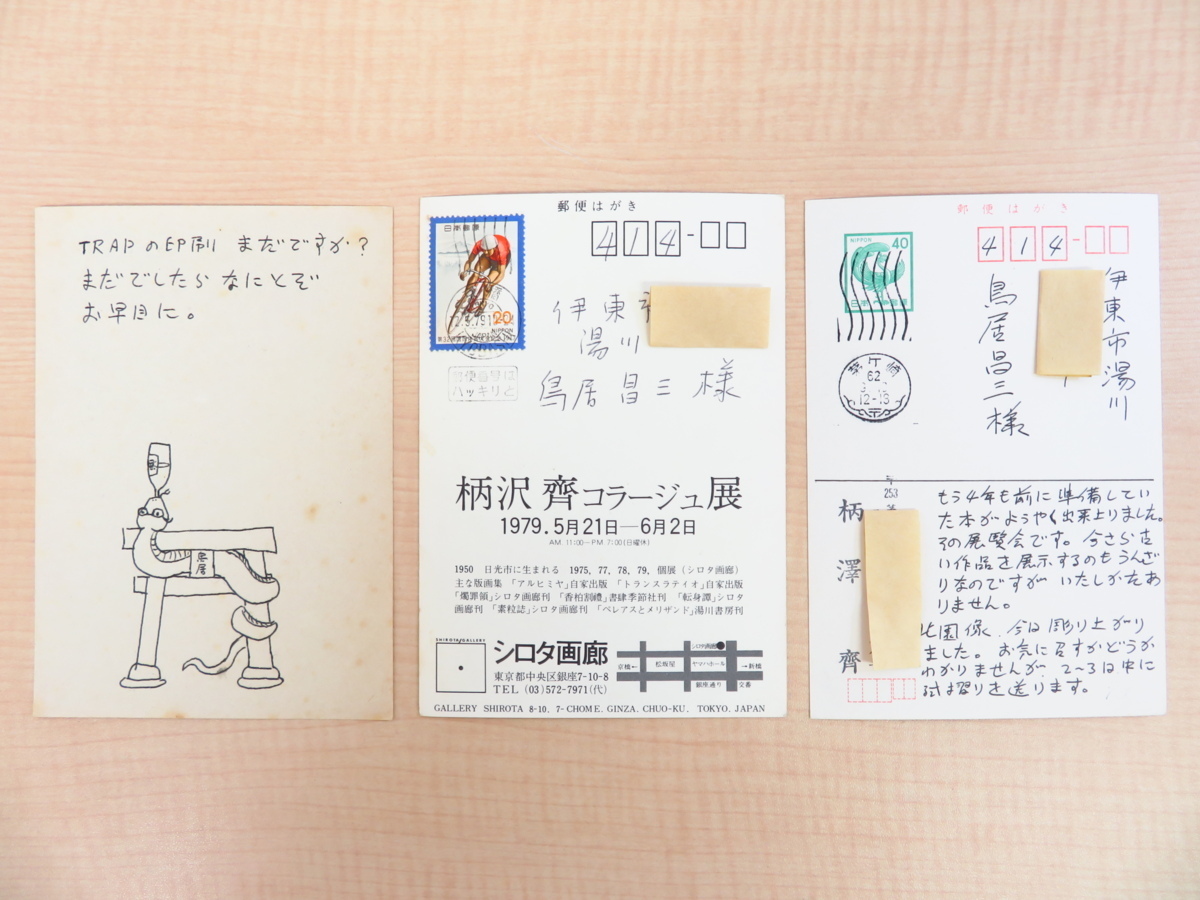 TRAPの印刷 まだですか?
まだでしたら なにとぞ
お早目に。
鳥居
郵便はがき
日本郵便
20
NIPPON
414-
伊東市
湯川
鳥居昌三様
郵便番号は
ハッキリと
柄沢 齊コラージュ展
1979.5月21日—6月2日
AM. 11:00—PM. 7:00(日曜休)
1950 日光市に生まれる 1975, 77, 78, 79, 個展(シロタ画廊)
主な版画集「アルヒミヤ」自家出版 「トランスラティオ」自家出版
「燭罪領」シロタ画廊刊 「香柏割禮」書肆季節社刊 「転身譚」シロタ
画廊刊 「素粒誌」シロタ画廊刊 「ペレアスとメリザンド」湯川書房刊
SHIROTA GALLERY
シロタ画廊
東京都中央区銀座7-10-8
TEL (03)572-7971(代)
シロタ画廊
京橋←
松坂屋
ヤマハホール
→新橋
銀座通り
交番
GALLERY SHIROTA 8-10, 7-CHOME. GINZA. CHUO-KU. TOKYO. JAPAN
郵便はがき
NIPPON 40
日本郵便
414-
伊東市湯川
鳥居昌三様
茅ヶ崎
62
12-18
253
柄澤齊
もう4年も前に準備してい
た本がようやく出来上りました。
その展覧会です。今さら古
い作品を展示するのもうんざ
りなのですが いたしかたあ
りません。
北園像、今日彫り上がり
ました。お気に召すかどうか
わかりませんが、2〜3日中に
試し摺りを送ります。